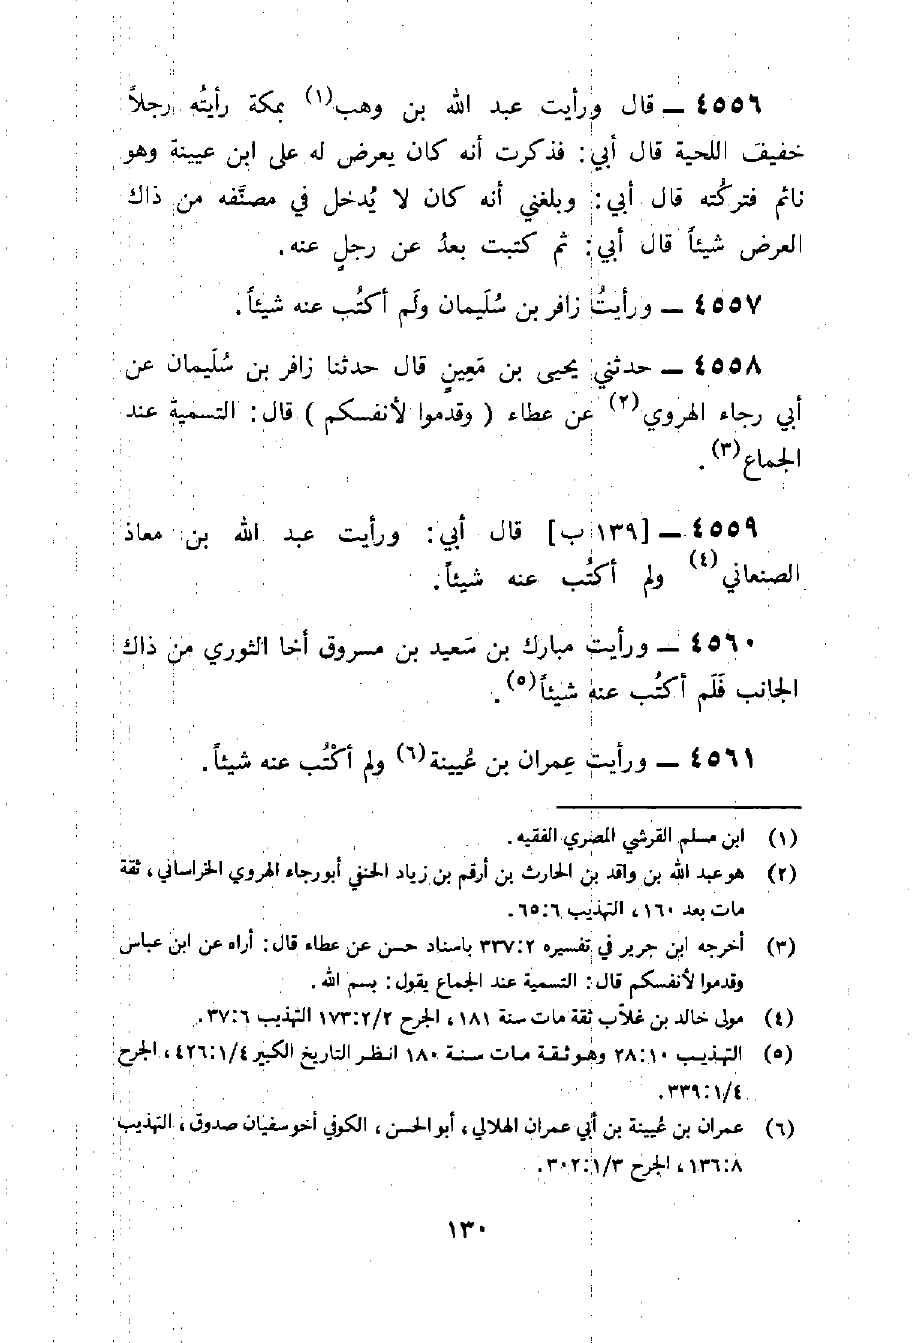 ٤٥٥٦ ــ قال ورأيت عبد الله بن وهب(١) بمكة رأيتُه رجلاً
خفيف اللحية قال أبي: فذكرت أنه كان يعرض له على ابن عيينة وهو
نائم فتركُته قال أبي: وبلغني أنه كان لا يُدخل في مصنَّفه من ذاك
العرض شيئاً قال أبي: ثم كتبت بعدُ عن رجلٍ عنه.
٤٥٥٧ ــ ورأيتُ زافر بن سُلَيمان ولَم أكتُب عنه شيئاً.
٤٥٥٨ ــ حدثني يحيى بن مَعِينٍ قال حدثنا زافر بن سُلَيمان عن
أبي رجاء الهروي(٢) عن عطاء ( وقدموا لأنفسكم ) قال: التسمية عند
الجماع(٣).
٤٥٥٩ ــ [١٣٩ ب] قال أبي: ورأيت عبد الله بن معاذ
الصنعاني(٤) ولم أكتُب عنه شيئاً.
٤٥٦٠ ــ ورأيت مبارك بن سَعيد بن مسروق أخا الثوري من ذاك
الجانب فَلَم أكتُب عنه شيئاً(٥).
٤٥٦١ ــ ورأيت عِمران بن عُيينة(٦) ولم أكْتُب عنه شيئاً.
(١) ابن مسلم القرشي المصري الفقيه.
(٢) هو عبد الله بن واقد بن الحارث بن أرقم بن زياد الحنفي أبو رجاء الهروي الخراساني، ثقة
مات بعد ١٦٠، التهذيب ٦:٦٥.
(٣) أخرجه ابن جرير في تفسيره ٢:٣٣٧ باسناد حسن عن عطاء قال: أراه عن ابن عباس
وقدموا لأنفسكم قال: التسمية عند الجماع يقول: بسم الله.
(٤) مولى خالد بن غلاّب ثقة مات سنة ١٨١، الجرح ٢/٢:١٧٣ التهذيب ٦:٣٧.
(٥) التهذيب ١٠:٢٨ وهو ثقة مات سنة ١٨٠ انظر التاريخ الكبير ١/٤:٤٢٦، الجرح
١/٤:٣٣٩.
(٦) عمران بن عُيينة بن أبي عمران الهلالي، أبو الحسن، الكوفي أخو سفيان صدوق، التهذيب
٨:١٣٦، الجرح ١/٣:٣٠٢.
١٣٠